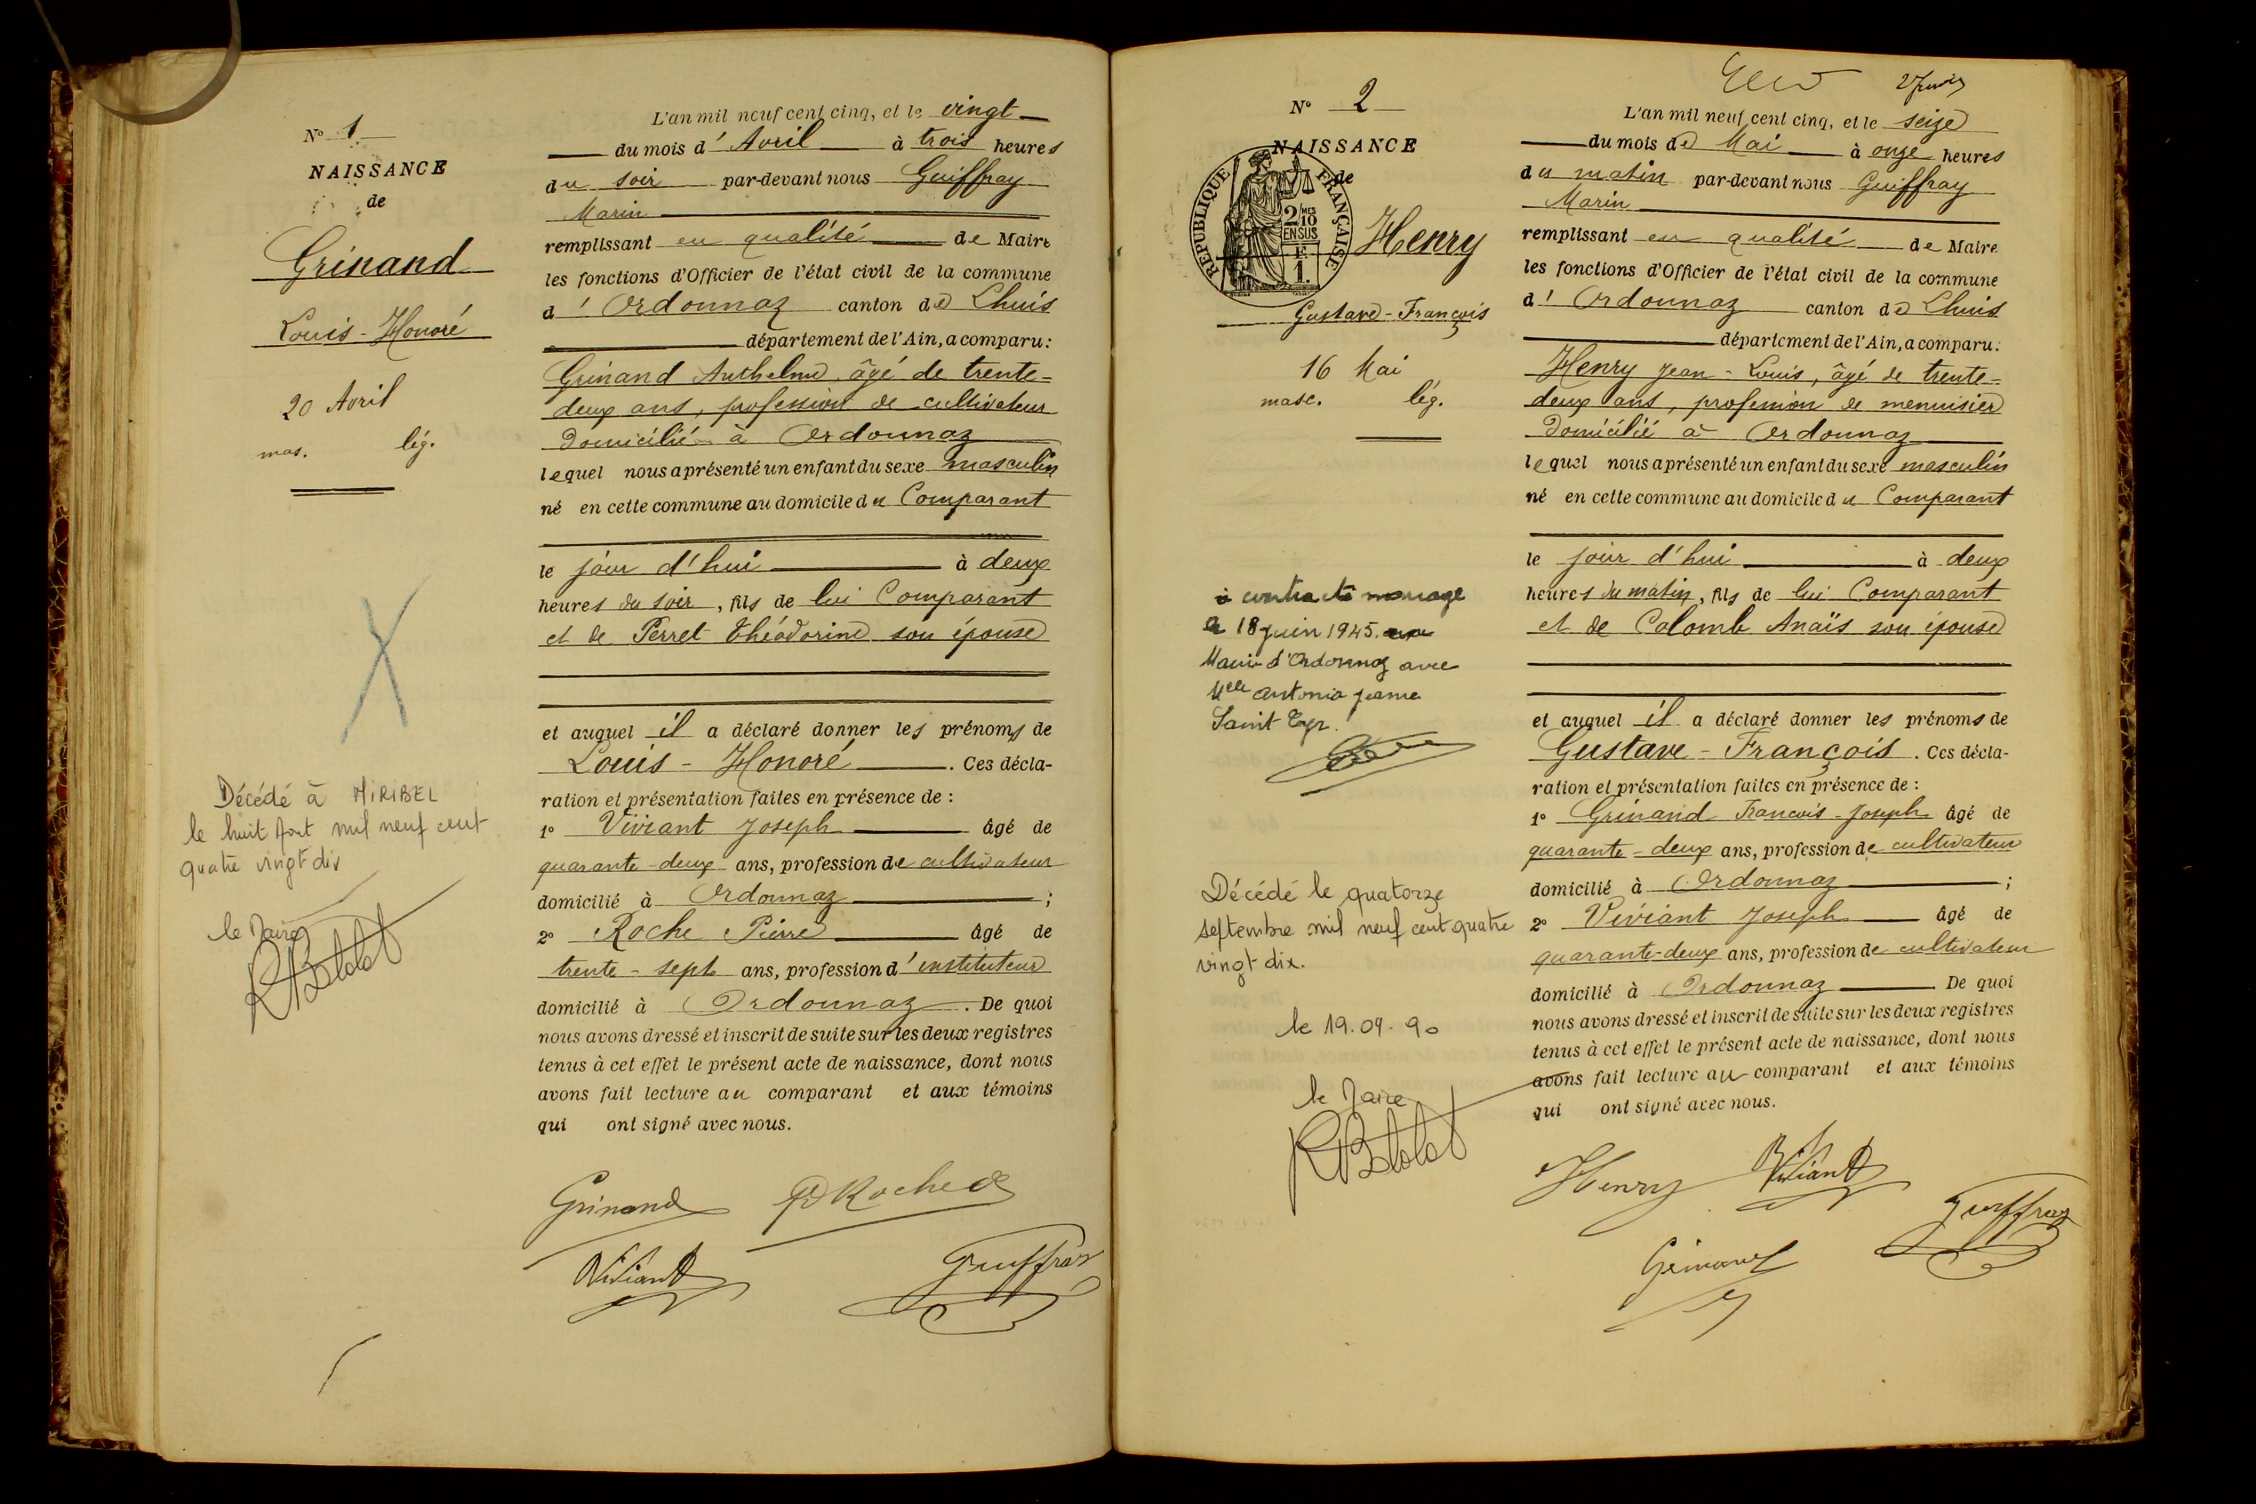 N° 1
NAISSANCE
de
Grinand
Louis-Honoré
20 Avril
mas. lég.
Décédé à MIRIBEL
le huit Aout mil neuf cent
quatre vingt dix
le Maire
L'an mil neuf cent cinq, et le vingt
du mois d'Avril à trois heures
du soir par-devant nous Guiffray
Marin
remplissant en qualité de Maire
les fonctions d'Officier de l'état civil de la commune
d'Ordonnaz canton de Lhuis
département de l'Ain, a comparu:
Grinand Anthelme âgé de trente-
deux ans, profession de cultivateur
domicilié à Ordonnaz
lequel nous a présenté un enfant du sexe masculin
né en cette commune au domicile du Comparant
le jour d'hui à deux
heures du soir, fils de lui Comparant
et de Perret Théodorine son épouse
et auquel il a déclaré donner les prénoms de
Louis-Honoré. Ces décla-
ration et présentation faites en présence de:
1° Viviant Joseph âgé de
quarante-deux ans, profession de cultivateur
domicilié à Ordonnaz;
2° Roche Pierre âgé de
trente-sept ans, profession d'instituteur
domicilié à Ordonnaz. De quoi
nous avons dressé et inscrit de suite sur les deux registres
tenus à cet effet le présent acte de naissance, dont nous
avons fait lecture au comparant et aux témoins
qui ont signé avec nous.
Grinand P Roche
Viviant Guiffray
N° 2
NAISSANCE
de
RÉPUBLIQUE FRANÇAISE
2/MES
10
EN SUS
F.
1.
Henry
Gustave-François
16 Mai
masc. lég.
a contracté mariage
le 18 juin 1945
Mairie d'Ordonnaz avec
Melle Antonia Jeanne
Saint Cyr.
Décédé le quatorze
septembre mil neuf cent quatre
vingt dix.
le 19.09.90
le Maire
L'an mil neuf cent cinq, et le seize
du mois de Mai à onze heures
du matin par-devant nous Guiffray
Marin
remplissant en qualité de Maire
les fonctions d'Officier de l'état civil de la commune
d'Ordonnaz canton de Lhuis
département de l'Ain, a comparu:
Henry Jean-Louis, âgé de trente-
deux ans, profession de menuisier
domicilié à Ordonnaz
lequel nous a présenté un enfant du sexe masculin
né en cette commune au domicile du Comparant
le jour d'hui à deux
heures du matin, fils de lui Comparant
et de Colomb Anaïs son épouse
et auquel il a déclaré donner les prénoms de
Gustave-François. Ces décla-
ration et présentation faites en présence de:
1° Grinand François-Joseph âgé de
quarante-deux ans, profession de cultivateur
domicilié à Ordonnaz;
2° Viviant Joseph âgé de
quarante-deux ans, profession de cultivateur
domicilié à Ordonnaz De quoi
nous avons dressé et inscrit de suite sur les deux registres
tenus à cet effet le présent acte de naissance, dont nous
avons fait lecture au comparant et aux témoins
qui ont signé avec nous.
Henry Viviant
Guiffray
Grinand